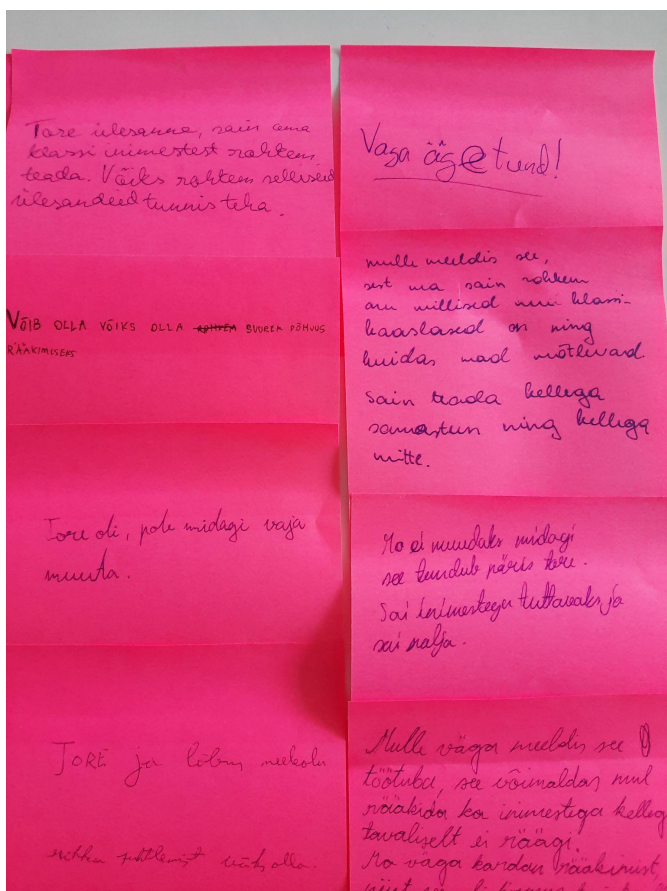 Tore ülesanne, sain oma
klassi inimestest rohkem
teada. Võiks rohkem selliseid
ülesandeid tunnis teha.
VÕIB OLLA VÕIKS OLLA ROHKEM SUUREM PÕHJUS
RÄÄKIMISEKS
Tore oli, pole midagi vaja
muuta.
TORE ja lõbus meeleolu
rohkem suhtlemist võiks olla.
Väga äge tund!
mulle meeldis see,
sest ma sain rohkem
aru millised mu klassi-
kaaslased on ning
kuidas nad mõtlevad.
Sain teada kellega
samastun ning kellega
mitte.
Ma ei muudaks midagi
see tundub päris tore.
Sai inimestega tuttavaks ja
sai nalja.
Mulle väga meeldis see
töötuba, see võimaldas mul
rääkida ka inimestega kellega
tavaliselt ei räägi.
Ma väga kardan rääkimist,